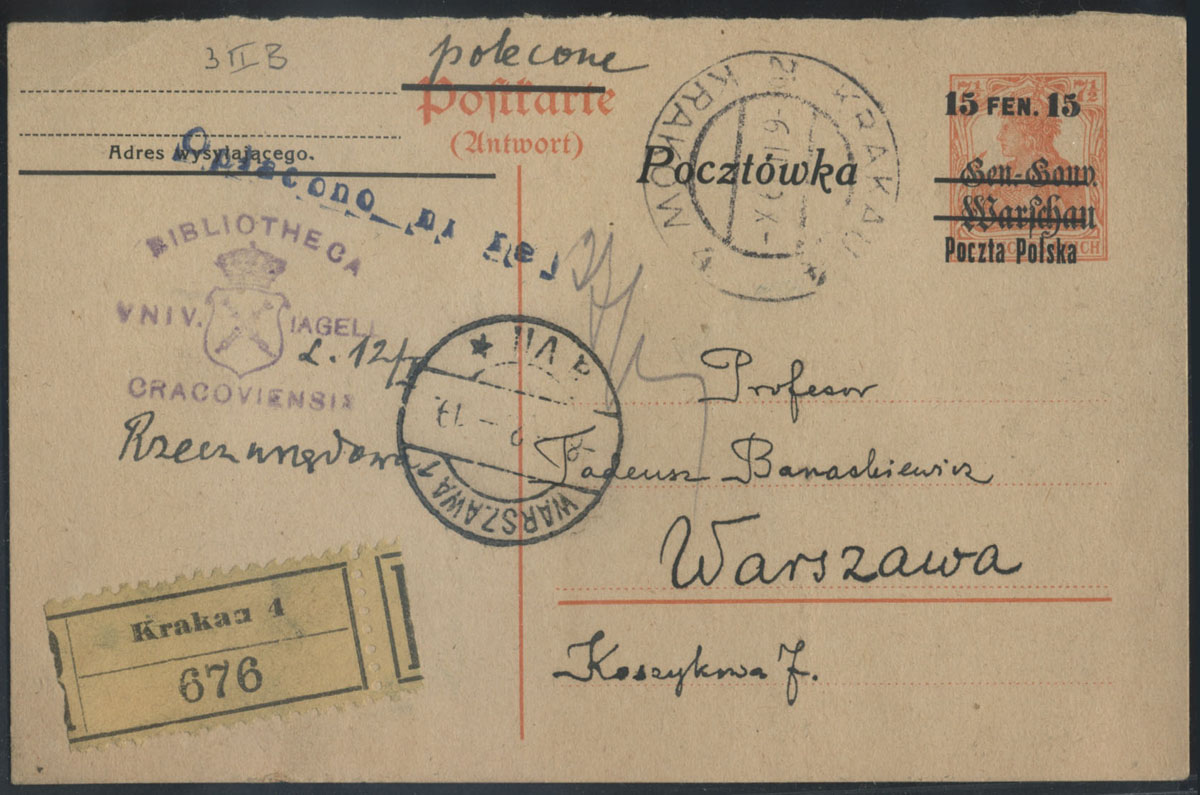 3 II B
polecone
Postkarte
(Antwort)
Adres wysyłającego.
Opłacono
Pocztówka
KRAKAU
KRAKÓW
15 FEN. 15
7½ 7½
Gen.-Gouv.
Warschau
Poczta Polska
BIBLIOTHECA
VNIV. IAGELL
CRACOVIENSIS
WARSZAWA 1
Profesor
Tadeusz Banachiewicz
Warszawa
Koszykowa
Krakau 4
676